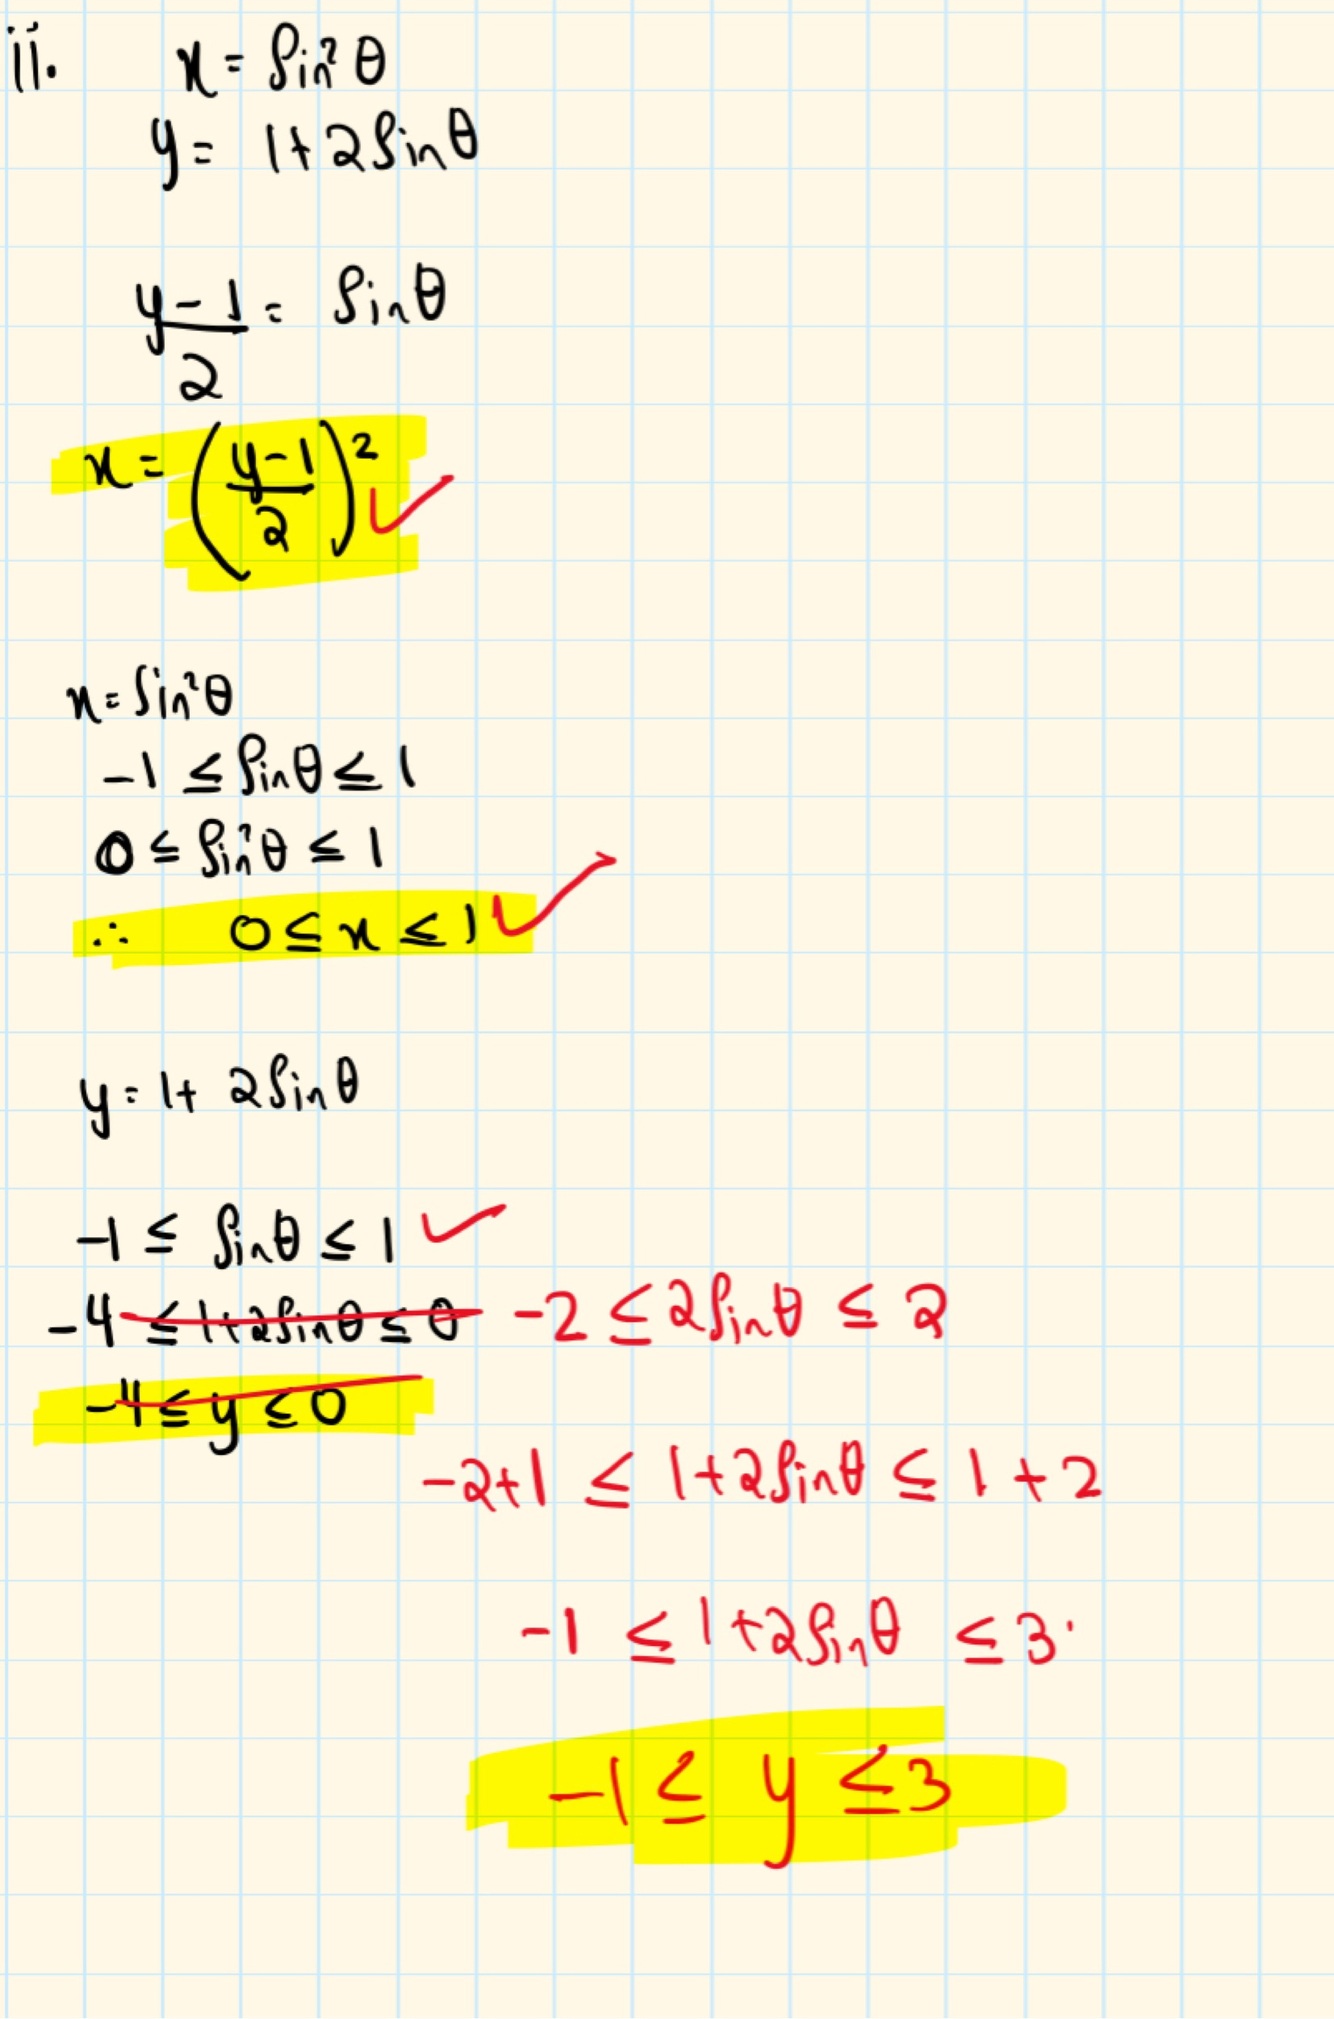 ii. x = Sin²θ
y = 1+2Sinθ
y-1/2 = Sinθ
x = (y-1/2)²
x = Sin²θ
-1 ≤ Sinθ ≤ 1
0 ≤ Sin²θ ≤ 1
∴ 0 ≤ x ≤ 1
y = 1+ 2Sinθ
-1 ≤ Sinθ ≤ 1
-4 ≤ 1+2Sinθ ≤ 0 -2 ≤ 2Sinθ ≤ 2
-4 ≤ y ≤ 0
-2+1 ≤ 1+2Sinθ ≤ 1+2
-1 ≤ 1+2Sinθ ≤ 3
-1 ≤ y ≤ 3